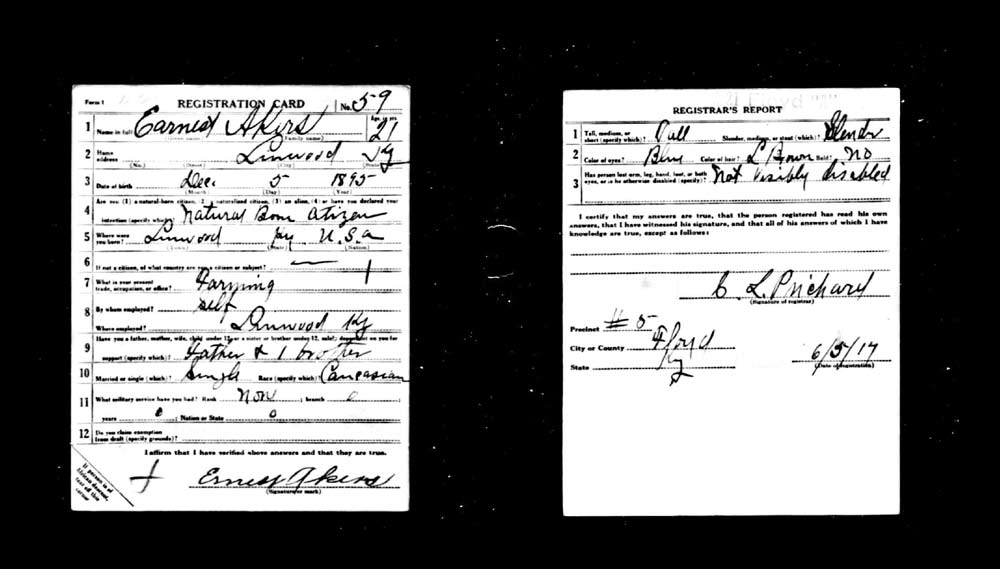 Form 1 REGISTRATION CARD No. 59
1 Name in full Earnest Akers Age, in yrs. 21
(Family name)
2 Home address Linwood Ky
(No.) (Street) (City) (State)
3 Date of birth Dec. 5 1895
(Month) (Day) (Year)
4 Are you (1) a natural-born citizen, (2) a naturalized citizen, (3) an alien, (4) or have you declared your
intention (specify which)? Natural Born Citizen
5 Where were you born? Linwood Ky U.S.a
(Town) (State) (Nation)
6 If not a citizen, of what country are you a citizen or subject? —
7 What is your present trade, occupation, or office? Farming
8 By whom employed? self
Where employed? Linwood Ky
9 Have you a father, mother, wife, child under 12, or a sister or brother under 12, solely dependent on you for
support (specify which)? Father & 1 brother
10 Married or single (which)? Single Race (specify which)? Caucasian
11 What military service have you had? Rank Non ; branch 0
years 0 ; Nation or State 0
12 Do you claim exemption from draft (specify grounds)?
I affirm that I have verified above answers and that they are true.
Ernest Akers
(Signature or mark)
If person is of
African descent,
tear off this
corner
REGISTRAR'S REPORT
1 Tall, medium, or short (specify which)? Tall Slender, medium, or stout (which)? Slender
2 Color of eyes? Blue Color of hair? L Brown Bald? NO
3 Has person lost arm, leg, hand, foot, or both
eyes, or is he otherwise disabled (specify)? Not visibly disabled
I certify that my answers are true, that the person registered has read his own
answers, that I have witnessed his signature, and that all of his answers of which I have
knowledge are true, except as follows:
C. L. Prichard
(Signature of registrar)
Precinct # 5
City or County Floyd
State Ky
6/5/17
(Date of registration)